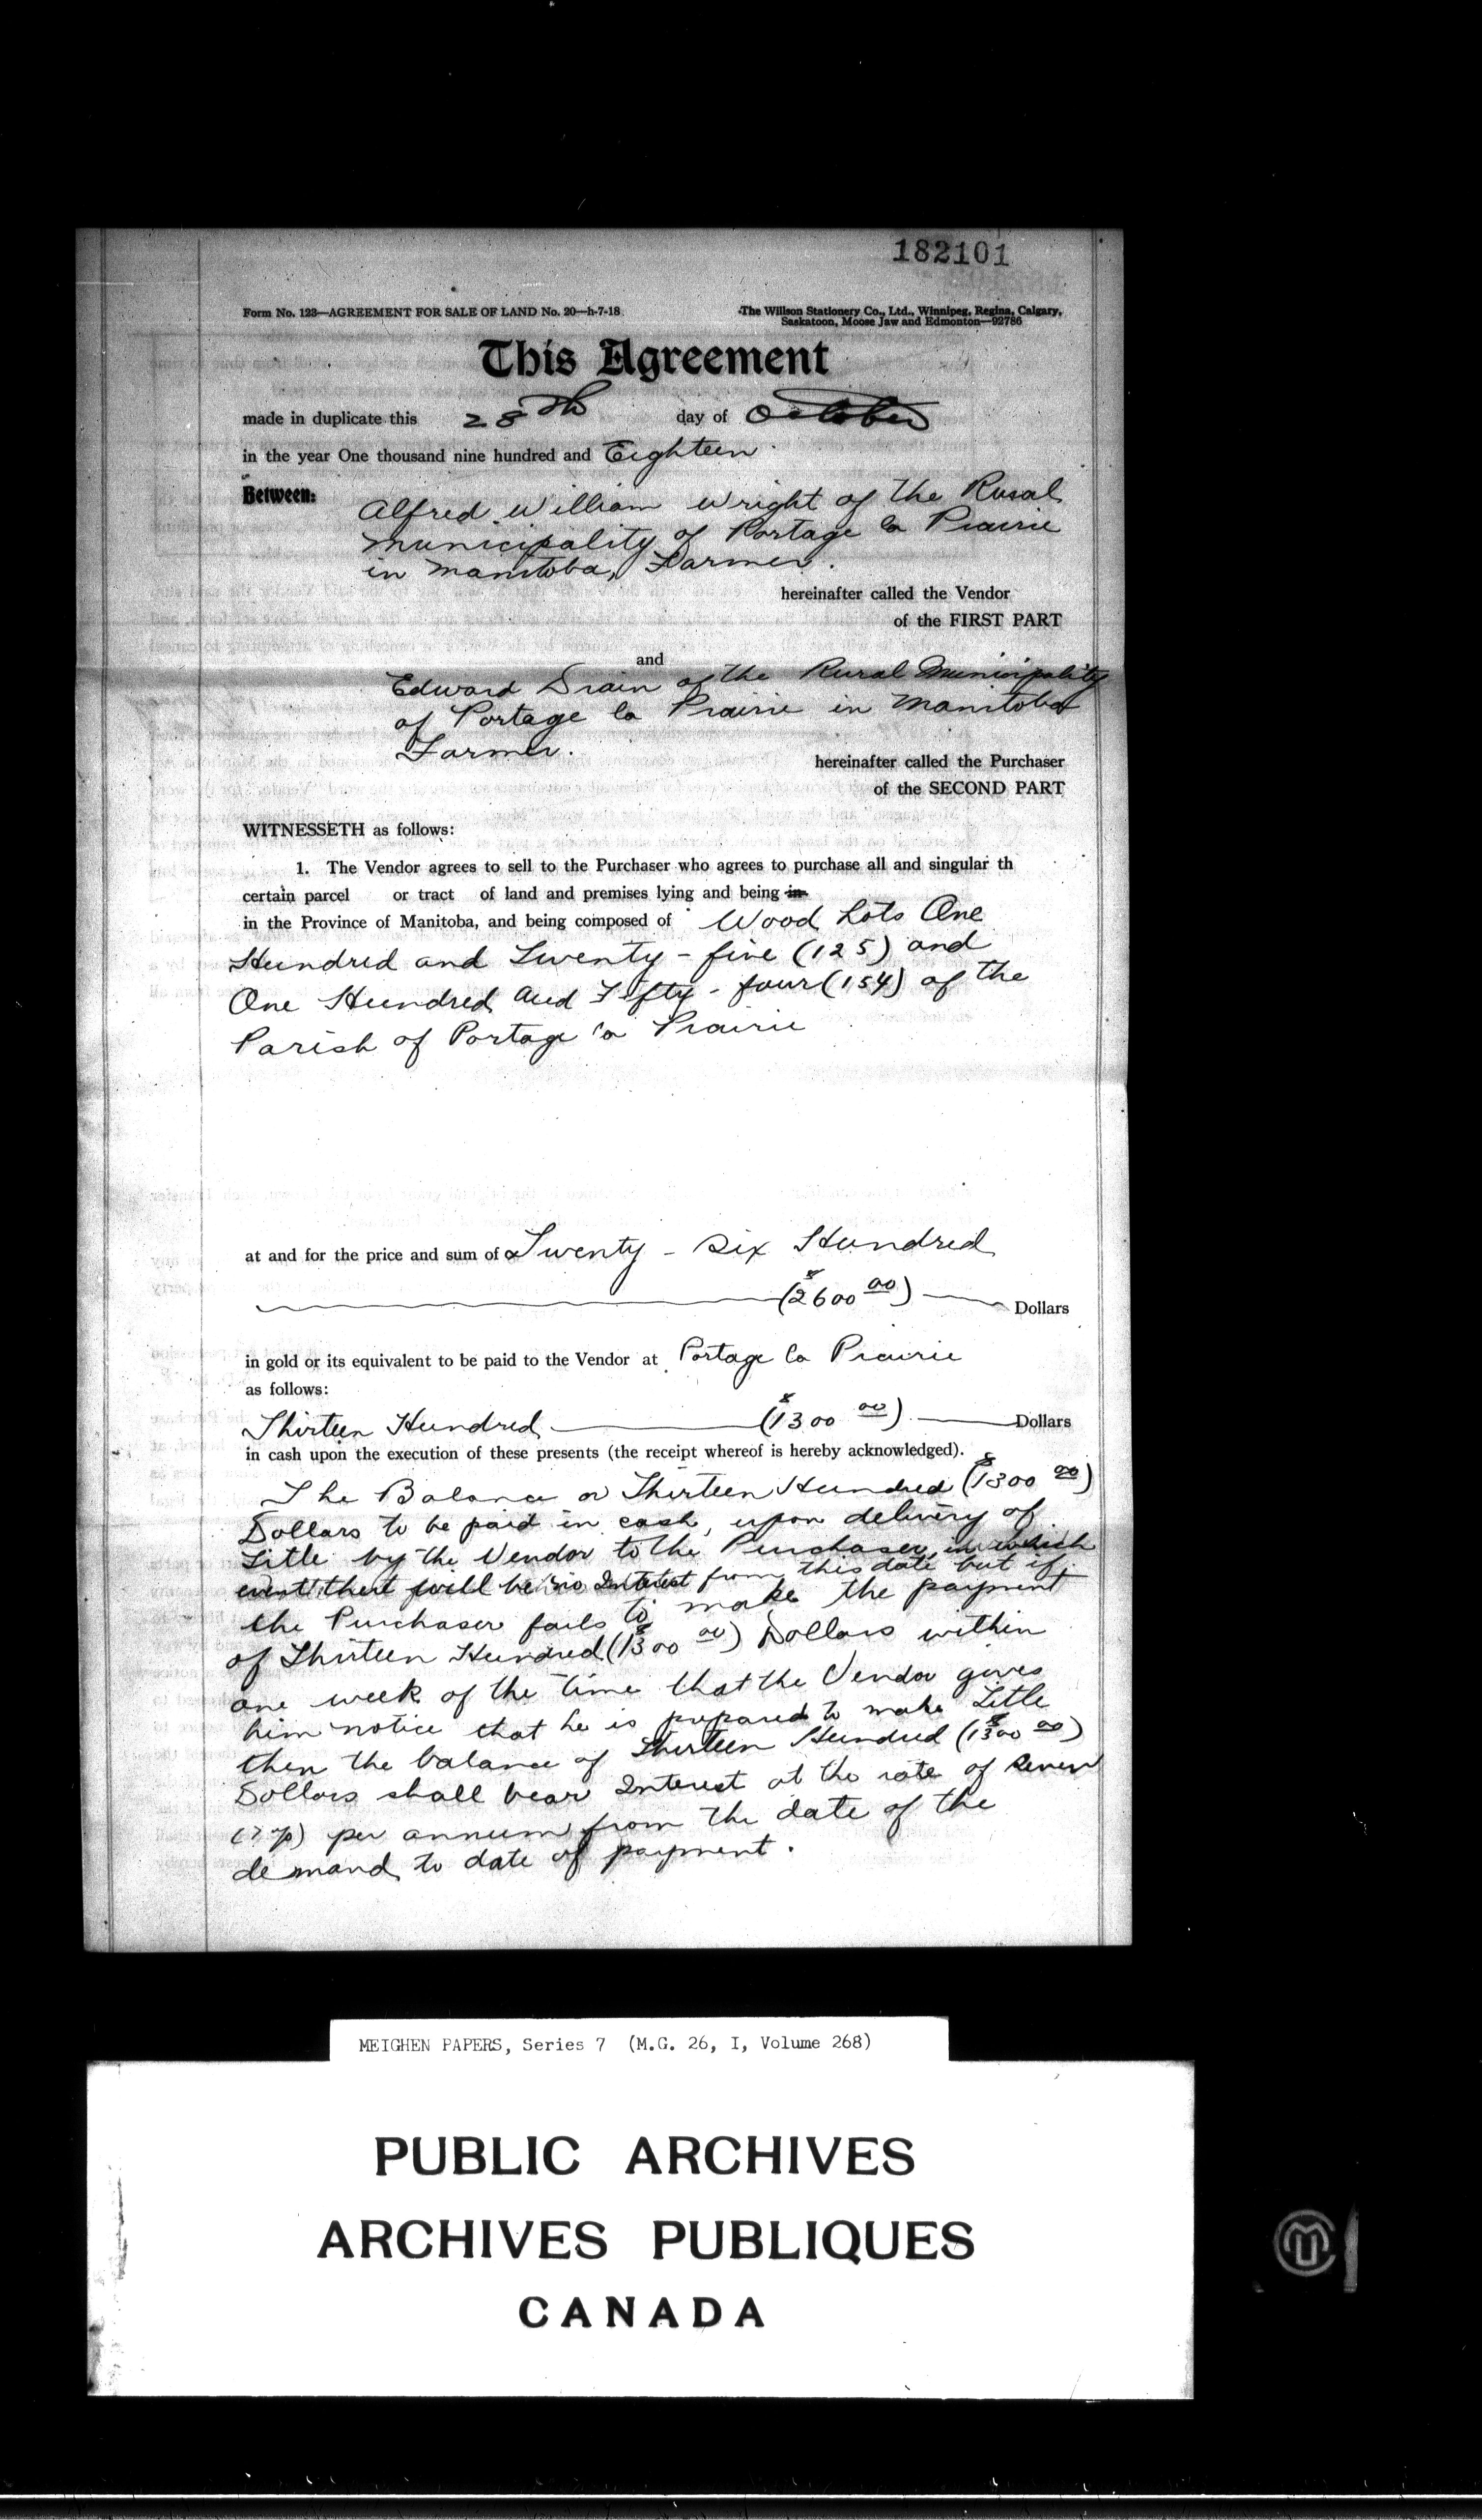 182101
Form No. 123—AGREEMENT FOR SALE OF LAND No. 20—h-7-18
The Willson Stationery Co., Ltd., Winnipeg, Regina, Calgary,
Saskatoon, Moose Jaw and Edmonton—92786
This Agreement
made in duplicate this 28th day of October
in the year One thousand nine hundred and Eighteen
Between:
Alfred William Wright of the Rural
Municipality of Portage la Prairie
in Manitoba, Farmer.
hereinafter called the Vendor
of the FIRST PART
and
Edward Drain of the Rural Municipality
of Portage la Prairie in Manitoba
Farmer.
hereinafter called the Purchaser
of the SECOND PART
WITNESSETH as follows:
1. The Vendor agrees to sell to the Purchaser who agrees to purchase all and singular th
certain parcel or tract of land and premises lying and being in
in the Province of Manitoba, and being composed of Wood Lots One
Hundred and Twenty-five (125) and
One Hundred and Fifty-four (154) of the
Parish of Portage la Prairie
at and for the price and sum of Twenty-six Hundred
($2600 00) Dollars
in gold or its equivalent to be paid to the Vendor at Portage la Prairie
as follows:
Thirteen Hundred ($1300 00) Dollars
in cash upon the execution of these presents (the receipt whereof is hereby acknowledged).
The Balance or Thirteen Hundred ($1300 00)
Dollars to be paid in cash, upon delivery of
Title by the Vendor to the Purchaser, in which
event there will be no Interest from this date but if
the Purchaser fails to make the payment
of Thirteen Hundred ($1300 00) Dollars within
one week of the time that the Vendor gives
him notice that he is prepared to make Title
then the balance of Thirteen Hundred ($1300 00)
Dollars shall bear Interest at the rate of Seven
(7%) per annum from the date of the
demand to date of payment.
MEIGHEN PAPERS, Series 7 (M.G. 26, I, Volume 268)
PUBLIC ARCHIVES
ARCHIVES PUBLIQUES
CANADA